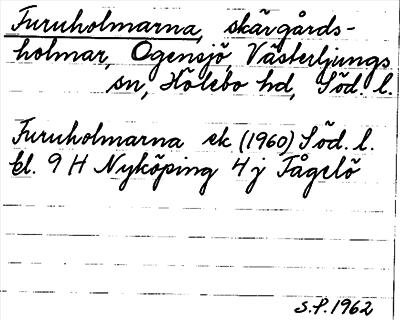 Furuholmarna, skärgårds-
holmar, Ogensjö, Västerljungs
sn, Hölebo hd, Söd. l.
Furuholmarna ek (1960) Söd. l.
bl. 9 H Nyköping 4 j Fågelö
S.P. 1962